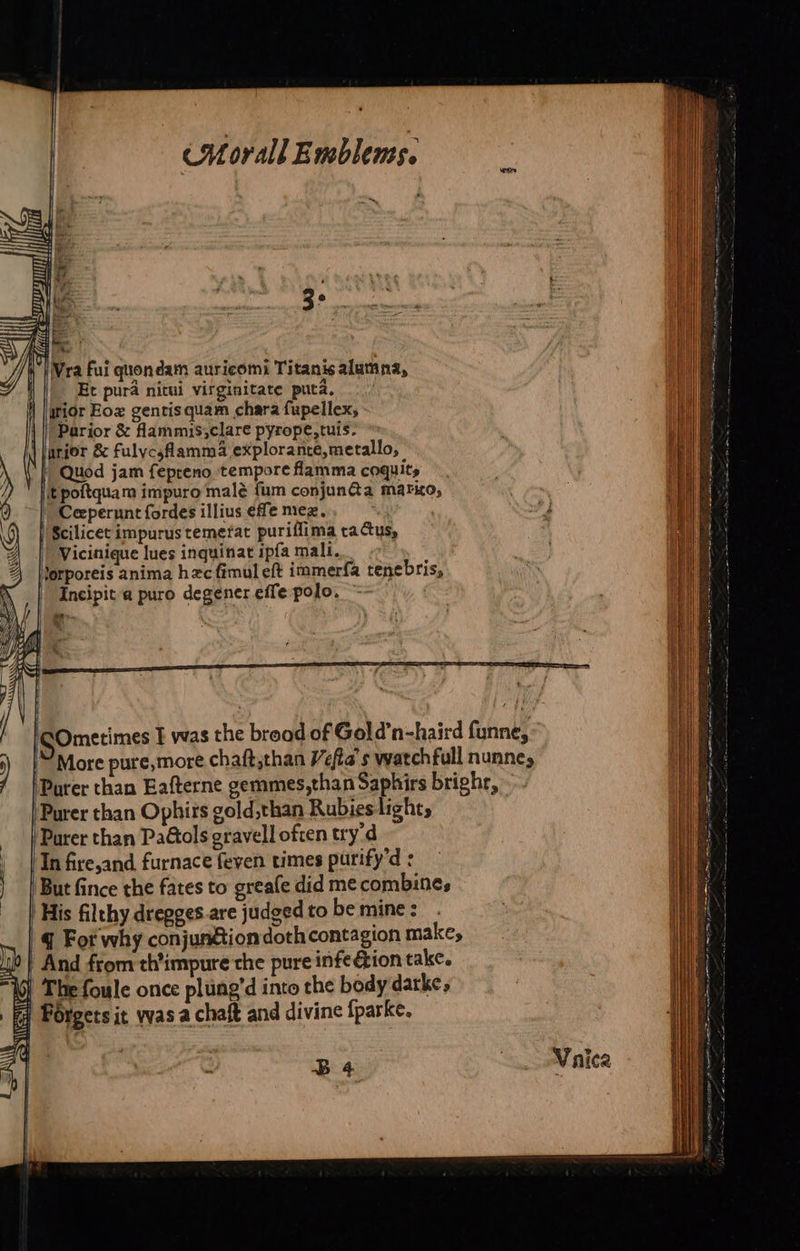 Morall Emblems.
3.
Vra fui quondam auricomi Titanis alumna,
Et purâ nitui virginitate puta.
urior Eoæ gentis quam chara ſupellex,
Purior & flammis,clare pyrope,tuis.
urior & fulvo,flammâ explorante,metallo,
Quod jam ſepteno tempore flamma coquit,
t poſtquam impuro malè ſum conjuncta marito,
Cœperunt ſordes illius eſſe meæ.
Scilicet impurus temerat puriſſima tactus,
Vicinique lues inquinat ipſa mali.
orporeis anima hæc ſimul eſt immerſa tenebris,
Incipit a puro degener eſſe polo.
SOmetimes I was the brood of Gold'n-haird ſunne,
More pure,more chaſt,than Veſta's watchfull nunne,
Purer than Eaſterne gemmes,than Saphirs bright,
Purer than Ophirs gold,than Rubies light,
Purer than Pactols gravell often try'd
In fire,and furnace ſeven times purify'd :
But ſince the fates to greaſe did me combine,
His filthy dregges are judged to be mine :
¶ For why conjunction doth contagion make,
And from th'impure the pure infection take.
The ſoule once plung'd into the body darke,
Forgets it was a chaſt and divine ſparke.
B 4
Vnica